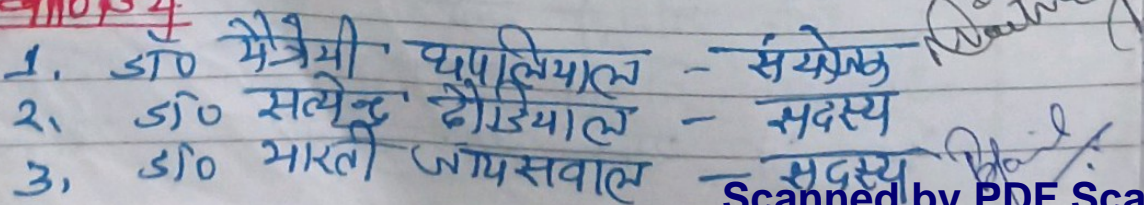 1. डॉ0 मैत्रेयी थपलियाल - संयोजक
2. डॉ0 सत्येन्द्र ढौंडियाल - सदस्य
3. डॉ0 भारती जायसवाल - सदस्य
Scanned by PDF Sca